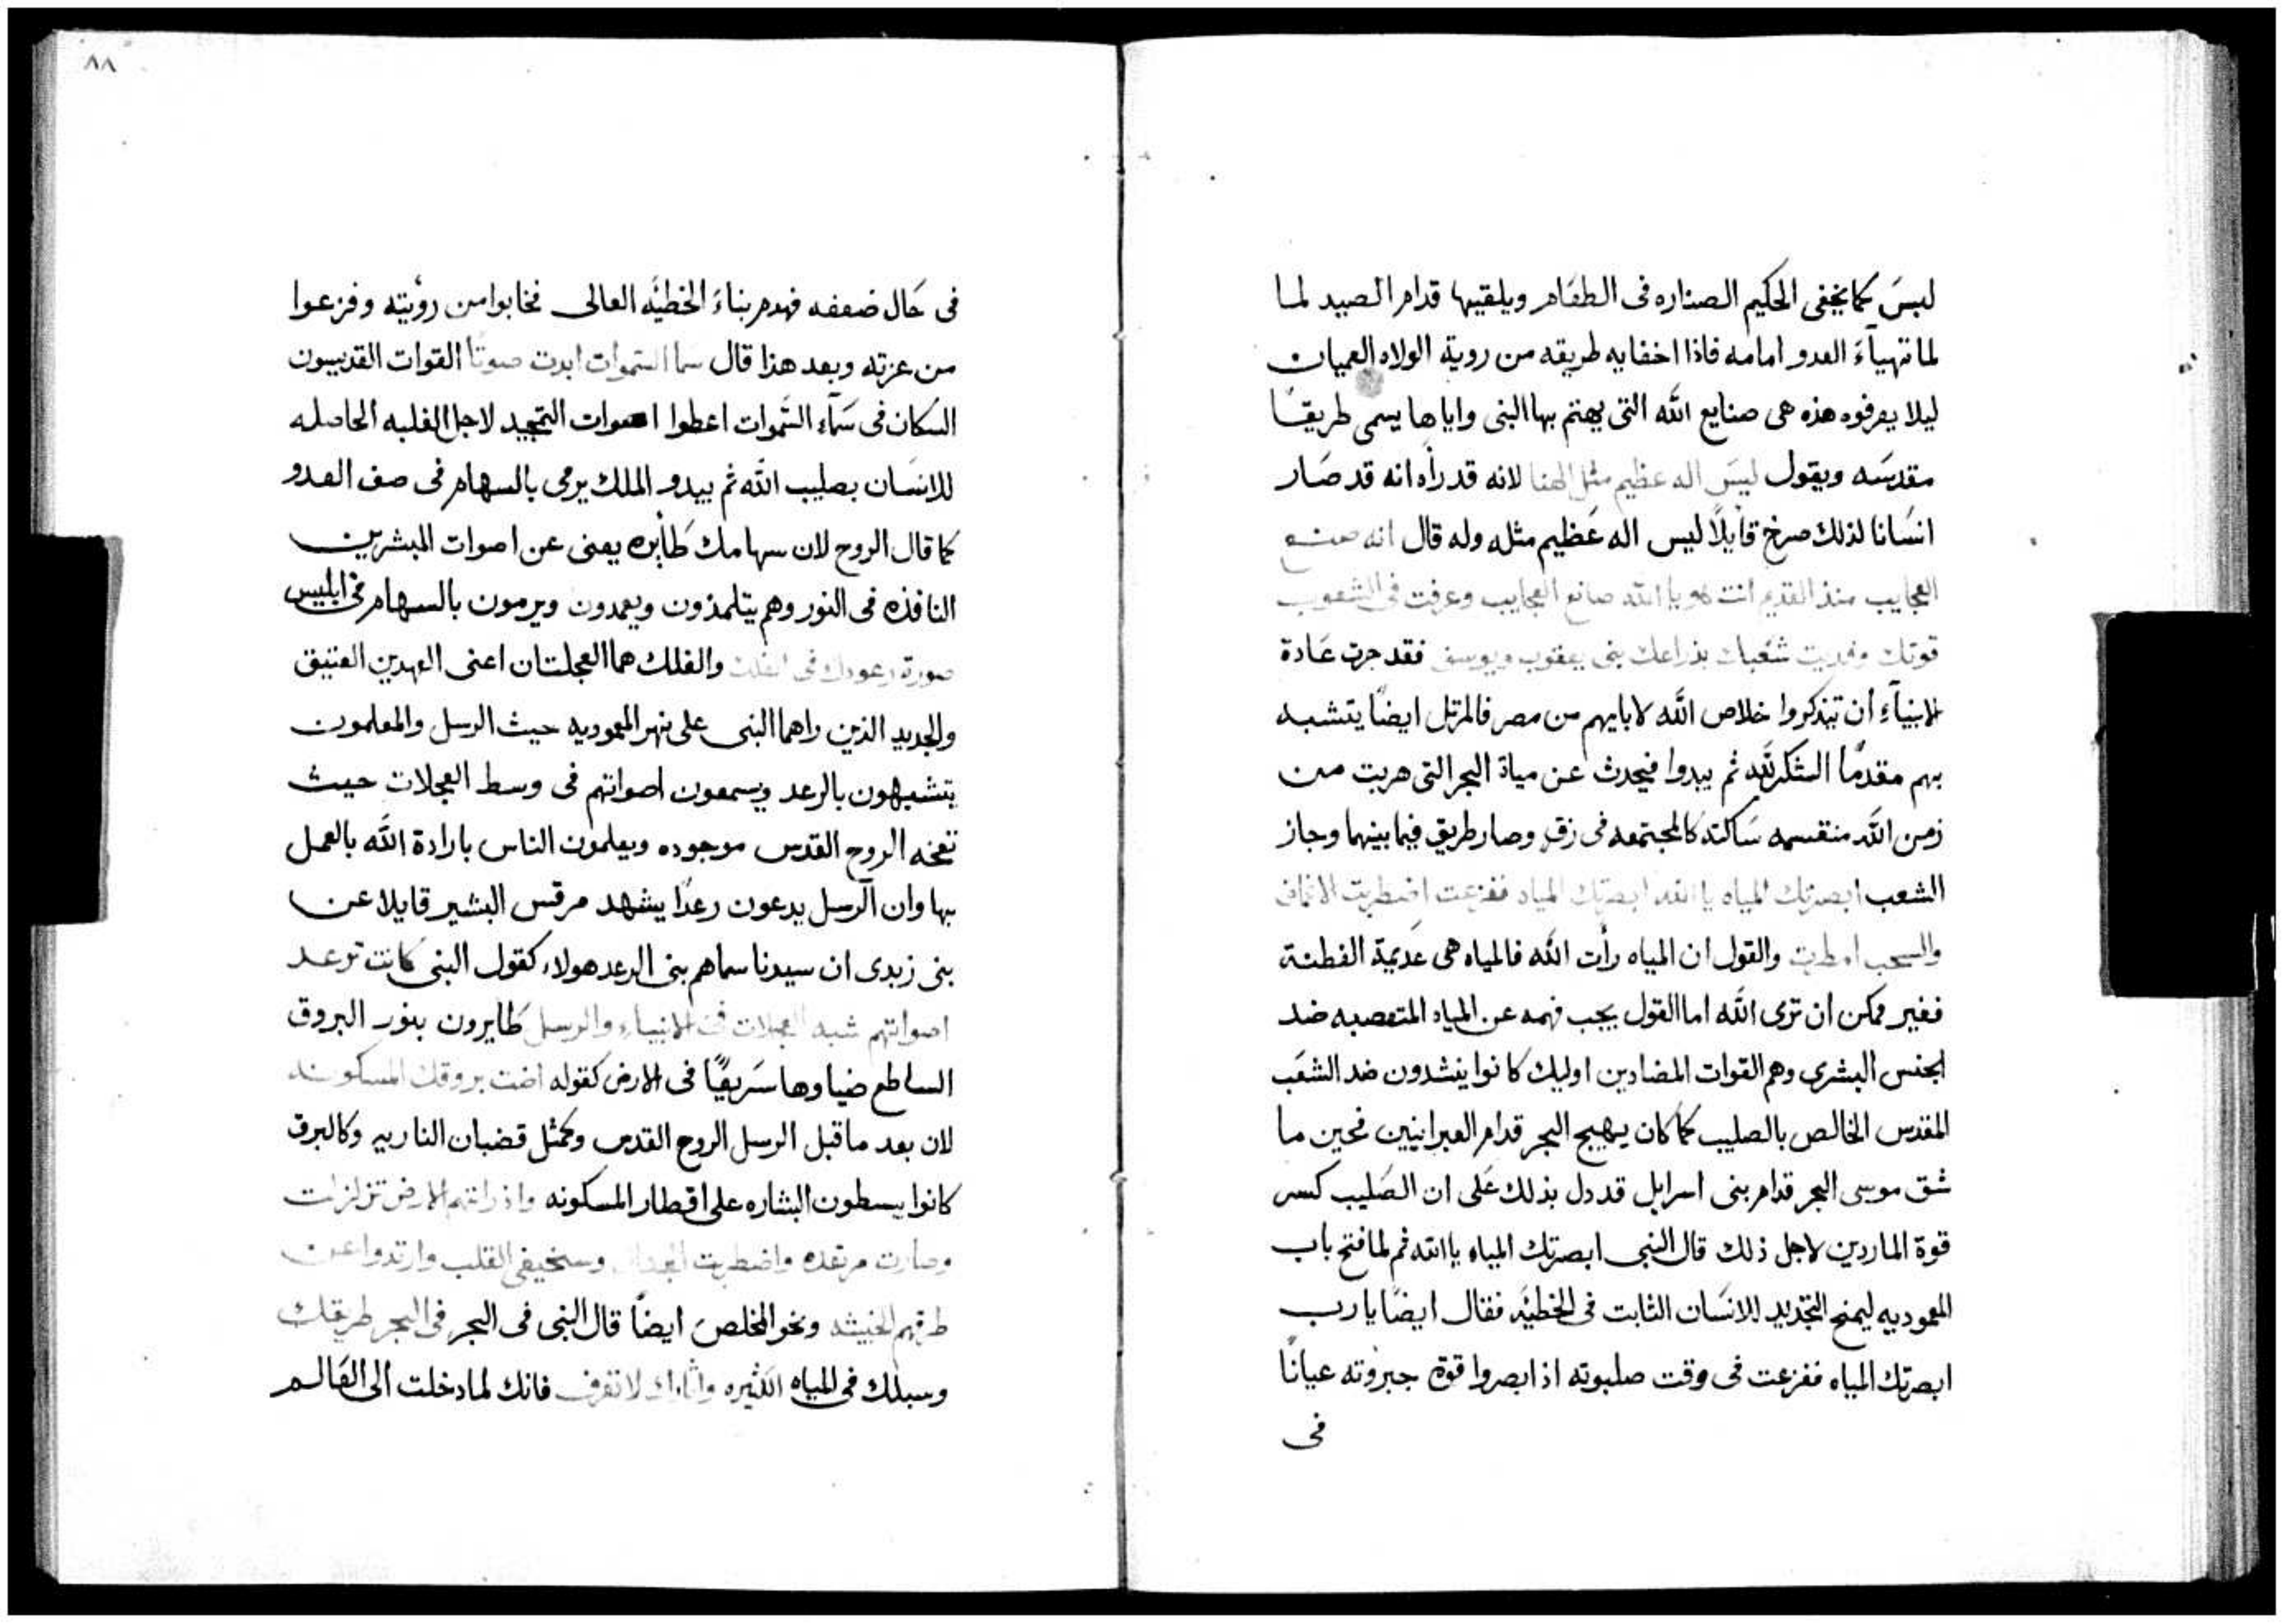 ليسَ كما يخفى الحكيم الصناره فى الطعَام ويلقيها قدام الصيد لما
لما تهياءَ العدو امامه فاذا اخفايه طريقه من روية الولاه العميان
ليلا يعرفوه هذه هى صنايع الله التى يهتم بها النبى واياها يسمى طريقًا
مقدسَه ويقول ليسَ اله عظيم مثل الهنا لانه قد رأه انه قد صَار
انسَانا لذلك صرخ قايلًا ليس اله عَظيم مثله وله قال انه صنع
العجايب منذ القديم انت هو يا الله صانع العجايب وعرفت فى الشعوب
قوتك وفديت شعَبك بذراعك بنى يعقوب ويوسف فقد جرت عَادة
الانبيآءِ أن تيذكروا خلاص الله لابايهم من مصر فالمرتل ايضًا يتشبه
بهم مقدمًا الشكر لله ثم يبدوا فيحدث عن مياة البحر التى هربت من
زمن الله منقسمه سَاكنه كالمجتمعه فى زق وصار طريق فيما بينهما وجاز
الشعب ابصرتك المياه يا الله ابصرتك المياه ففزعت اضطربت الاعماق
والسحب امطرت والقول ان المياه رأت الله فالمياه هى عَديمة الفطنة
فغير ممكن ان ترى الله اما القول يجب فهمه عن المياه المتعصبه ضد
الجنس البشرى وهم القوات المضادين اوليك كانوا ينشدون ضد الشعَب
المقدس الخالص بالصليب كما كان يهيج البحر قدام العبرانيين فحين ما
شق موسى البحر قدام بنى اسرايل قد دل بذلك عَلى ان الصَليب كسر
قوة الماردين لاجل ذلك قال النبى ابصرتك المياه يا الله ثم لما فتح باب
المعموديه ليمنح التجديد للانسَان الثابت فى الخطيَه فقال ايضًا يا رب
ابصرتك المياه ففزعت فى وقت صلبوته اذ ابصروا قوة جبروته عيانًا
فى
٨٨
فى حَال ضعفه فهدم بناءَ الخطيَه العالى فخابوا من رؤيته وفزعوا
من عزته وبعد هذا قال سَما السَموات ابدت صوتًا القوات القديسون
السكان فى سَمآء السَموات اعطوا اصوات التمجيد لاجل الغلبه الحاصله
للانسَان بصليب الله ثم يبدو الملك يرمى بالسهام فى صف العدو
كما قال الروح لان سهامك طَأيره يعنى عن اصوات المبشرين
النافذه فى النور وهم يتلمذون ويعمدون ويرمون بالسهام فى ابليس
صورة رعودك فى الفلك والفلك هما العجلتان اعنى العهدين العتيق
والجديد الذين راهما النبى على نهر المعموديه حيث الرسل والمعلمون
يتشبهون بالرعد ويسمعون اصواتهم فى وسط العجلات حيث
نفخه الروح القدس موجوده ويعلمون الناس بارادة الله بالعمل
بها وان الرسل يدعون رعدًا يشهد مرقس البشير قايلا عن
بنى زبدى ان سيدنا سماهم بنى الرعد هولاء كقول النبى كانت ترعد
اصواتهم شبه العجلات فى الانبياء والرسل طَايرون بنور البروق
الساطع ضياوها سَريعًا فى الارض كقوله اضت بروقك المسكونه
لان بعد ما قبل الرسل الروح القدس وكمثل قضبان الناريه وكالبرق
كانوا يبسطون البشاره على اقطار المسكونه واذ راتهم الارض تزلزلت
وصارت مرتعده واضطربت وسخيفى القلب وارتدوا عن
طرقهم الخبيثه ونحو المخلص ايضًا قال النبى فى البحر فى البحر طريقك
وسبلك فى المياه الكثيره واثارك لا تعرف فانك لما دخلت الى العَالم